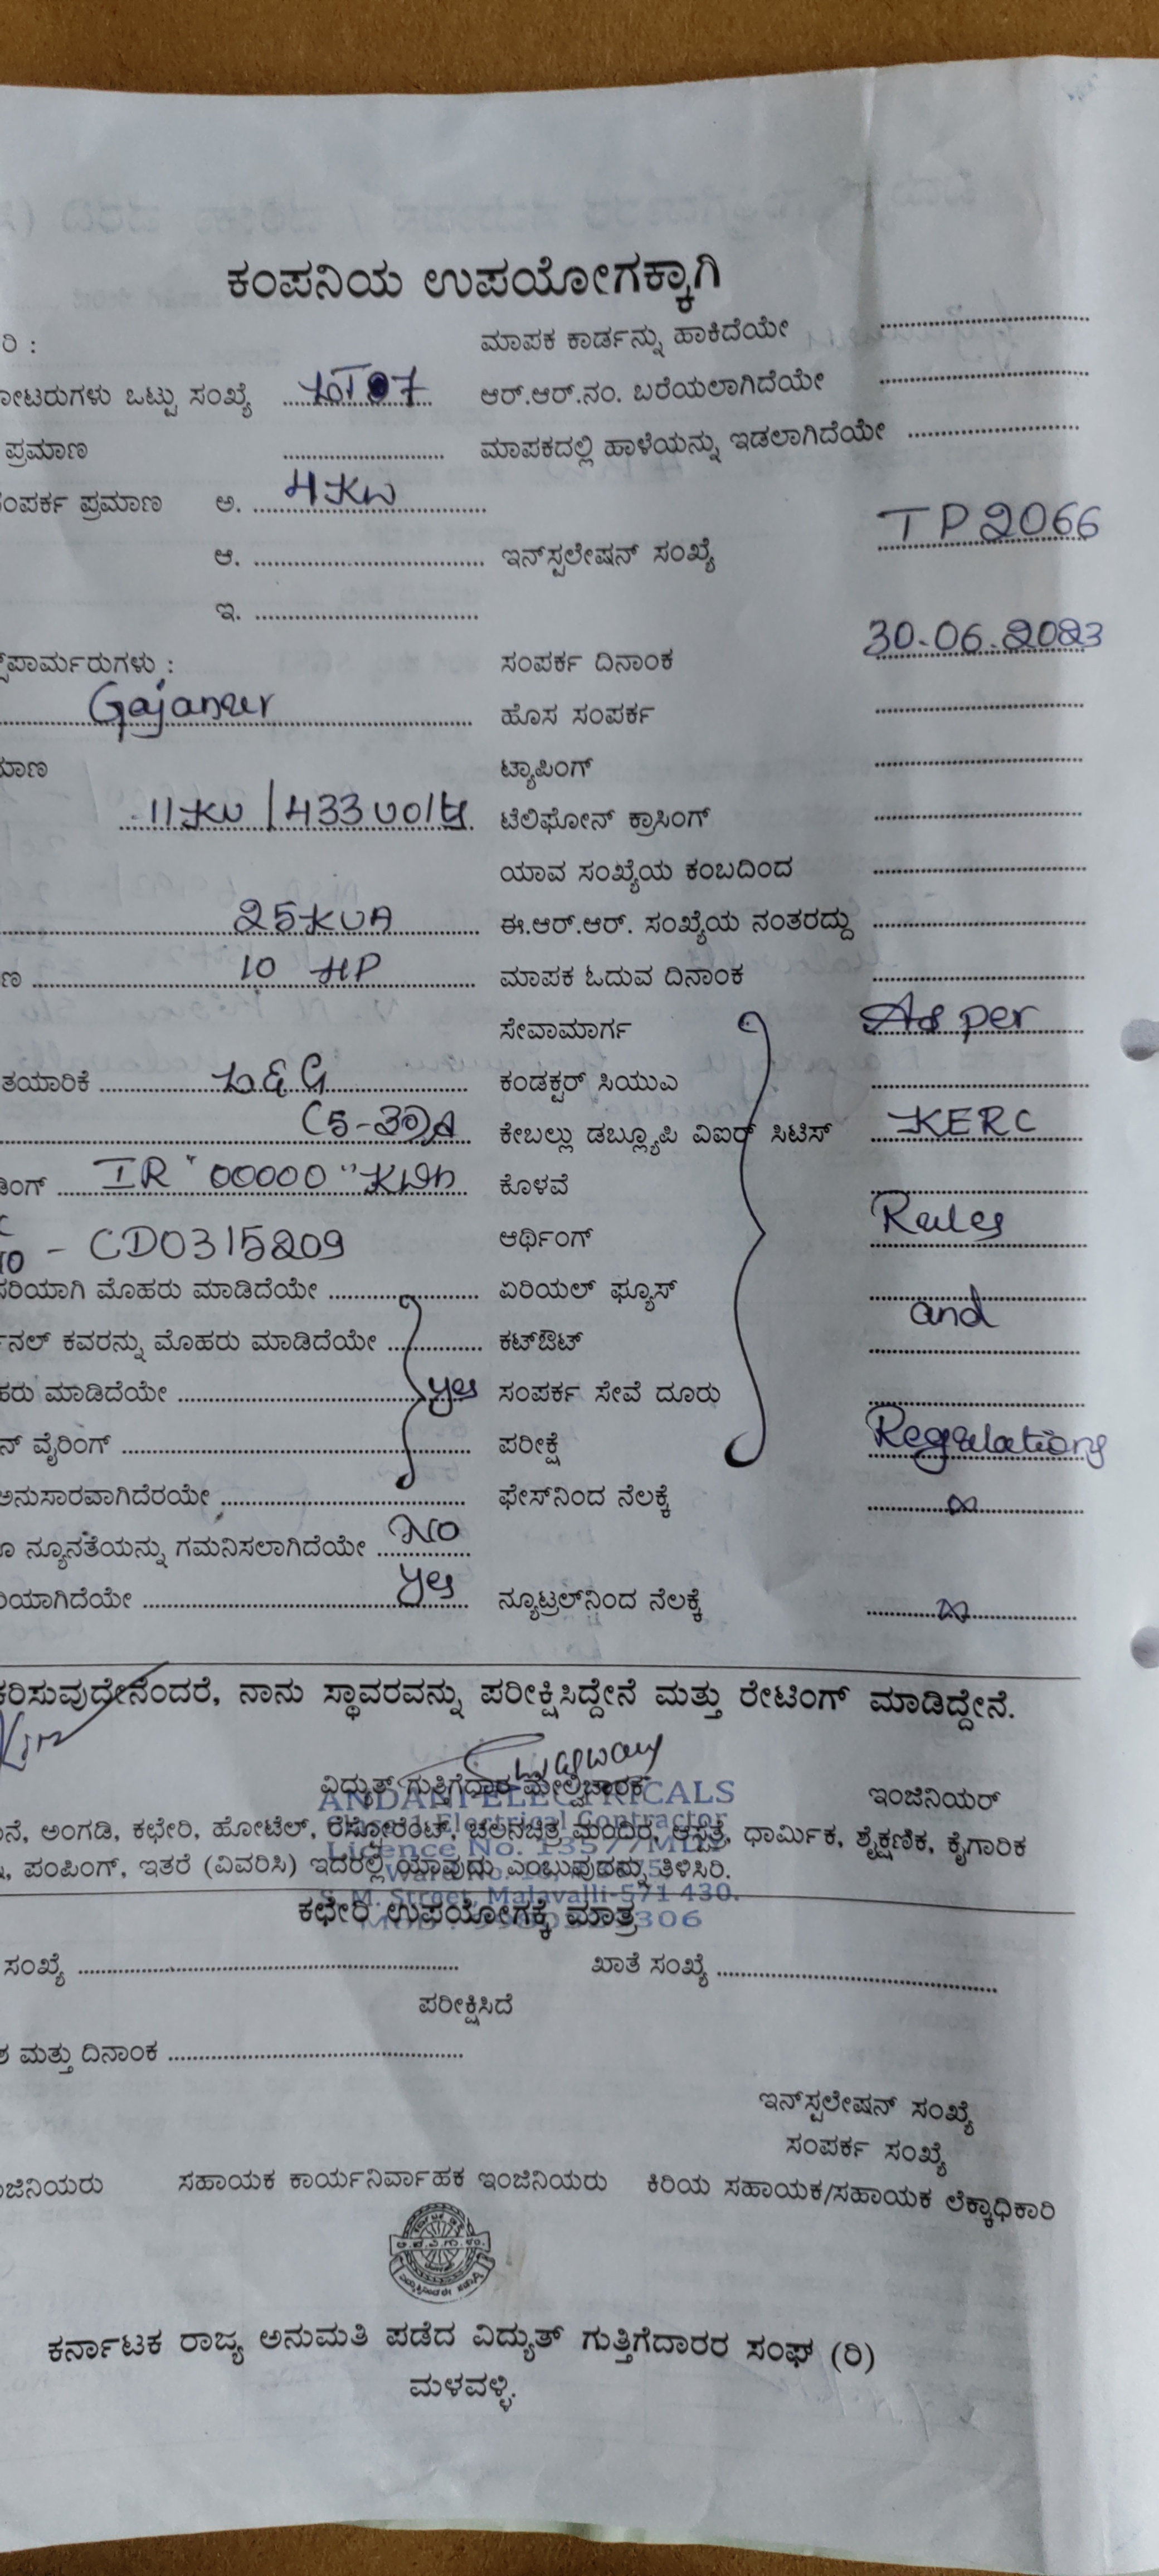 ಕಂಪನಿಯ ಉಪಯೋಗಕ್ಕಾಗಿ
ರಿ : ಮಾಪಕ ಕಾರ್ಡನ್ನು ಹಾಕಿದೆಯೇ
ೋಟರುಗಳು ಒಟ್ಟು ಸಂಖ್ಯೆ ಆರ್.ಆರ್.ನಂ. ಬರೆಯಲಾಗಿದೆಯೇ
ಪ್ರಮಾಣ ಮಾಪಕದಲ್ಲಿ ಹಾಳೆಯನ್ನು ಇಡಲಾಗಿದೆಯೇ
ಸಂಪರ್ಕ ಪ್ರಮಾಣ ಅ. 4 KW
ಆ. ಇನ್‌ಸ್ಟಲೇಷನ್ ಸಂಖ್ಯೆ TP 2066
ಇ.
ಸ್‌ಪಾರ್ಮರುಗಳು : ಸಂಪರ್ಕ ದಿನಾಂಕ 30-06-2023
ಹೊಸ ಸಂಪರ್ಕ
ಮಾಣ ಟ್ಯಾಪಿಂಗ್
11KV / 433 volts ಟೆಲಿಫೋನ್ ಕ್ರಾಸಿಂಗ್
ಯಾವ ಸಂಖ್ಯೆಯ ಕಂಬದಿಂದ
25 KVA ಈ.ಆರ್.ಆರ್. ಸಂಖ್ಯೆಯ ನಂತರದ್ದು
ಣ 10 HP ಮಾಪಕ ಓದುವ ದಿನಾಂಕ
ಸೇವಾಮಾರ್ಗ As per
ತಯಾರಿಕೆ L&G ಕಂಡಕ್ಟರ್ ಸಿಯುಎ
(5-30)A ಕೇಬಲ್ಲು ಡಬ್ಲ್ಯೂಪಿ ವಿಐಆರ್ ಸಿಟಿಸ್ KERC
ಡಿಂಗ್ IR "00000" KWh ಕೊಳವೆ
Rules
- CD0315209 ಆರ್ಥಿಂಗ್
ಸರಿಯಾಗಿ ಮೊಹರು ಮಾಡಿದೆಯೇ ಏರಿಯಲ್ ಫ್ಯೂಸ್ and
ನಲ್ ಕವರನ್ನು ಮೊಹರು ಮಾಡಿದೆಯೇ ಕಟ್‌ಔಟ್
ಹರು ಮಾಡಿದೆಯೇ yes ಸಂಪರ್ಕ ಸೇವೆ ದೂರು
ನ್ ವೈರಿಂಗ್ ಪರೀಕ್ಷೆ Regulations
ಅನುಸಾರವಾಗಿದೆರಯೇ ಫೇಸ್‌ನಿಂದ ನೆಲಕ್ಕೆ ∞
ನ್ಯೂನತೆಯನ್ನು ಗಮನಿಸಲಾಗಿದೆಯೇ NO
ರಿಯಾಗಿದೆಯೇ yes ನ್ಯೂಟ್ರಲ್‌ನಿಂದ ನೆಲಕ್ಕೆ ∞
ಕರಿಸುವುದೇನೆಂದರೆ, ನಾನು ಸ್ಥಾವರವನ್ನು ಪರೀಕ್ಷಿಸಿದ್ದೇನೆ ಮತ್ತು ರೇಟಿಂಗ್ ಮಾಡಿದ್ದೇನೆ.
ವಿದ್ಯುತ್ ಗುತ್ತಿಗೆದಾರ ಮೇಲ್ವಿಚಾರಕ ಇಂಜಿನಿಯರ್
ANDANI ELECTRICALS
Electrical Contractor
ನೆ, ಅಂಗಡಿ, ಕಛೇರಿ, ಹೋಟೆಲ್, ರೆಸ್ಟೋರೆಂಟ್, ಚಲನಚಿತ್ರ ಮಂದಿರ, ಆಸ್ಪತ್ರೆ, ಧಾರ್ಮಿಕ, ಶೈಕ್ಷಣಿಕ, ಕೈಗಾರಿಕ
Licence No.
, ಪಂಪಿಂಗ್, ಇತರೆ (ವಿವರಿಸಿ) ಇದರಲ್ಲಿ ಯಾವುದು ಎಂಬುವುದನ್ನು ತಿಳಿಸಿರಿ.
S.M. Street, Malavalli-571 430.
ಕಛೇರಿ ಉಪಯೋಗಕ್ಕೆ ಮಾತ್ರ
ಸಂಖ್ಯೆ ಖಾತೆ ಸಂಖ್ಯೆ
ಪರೀಕ್ಷಿಸಿದೆ
ಮತ್ತು ದಿನಾಂಕ
ಇನ್‌ಸ್ಟಲೇಷನ್ ಸಂಖ್ಯೆ
ಸಂಪರ್ಕ ಸಂಖ್ಯೆ
ಂಜಿನಿಯರು ಸಹಾಯಕ ಕಾರ್ಯನಿರ್ವಾಹಕ ಇಂಜಿನಿಯರು ಕಿರಿಯ ಸಹಾಯಕ/ಸಹಾಯಕ ಲೆಕ್ಕಾಧಿಕಾರಿ
ಕರ್ನಾಟಕ ರಾಜ್ಯ ಅನುಮತಿ ಪಡೆದ ವಿದ್ಯುತ್ ಗುತ್ತಿಗೆದಾರರ ಸಂಘ (ರಿ)
ಮಳವಳ್ಳಿ.